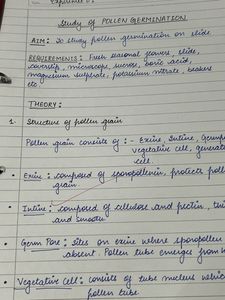 Experiment 8:
Study of POLLEN GERMINATION
AIM: To study pollen germination on slide.
REQUIREMENTS: Fresh seasonal flowers, slide,
coverslip, microscope, sucrose, boric acid,
magnesium sulphate, potassium nitrate, beakers
etc.
THEORY:
1. Structure of pollen grain
Pollen grain consists of :- Exine, Intine, Germ
vegetative cell, genera
cell.
• Exine: composed of sporopollenin, protects poll
grain.
• Intine: composed of cellulose and pectin,
and smooth
• Germ Pore: Sites on exine where sporopollen
absent. Pollen tube emerges from
• Vegetative cell: consists of tube nucleus which
pollen tube.